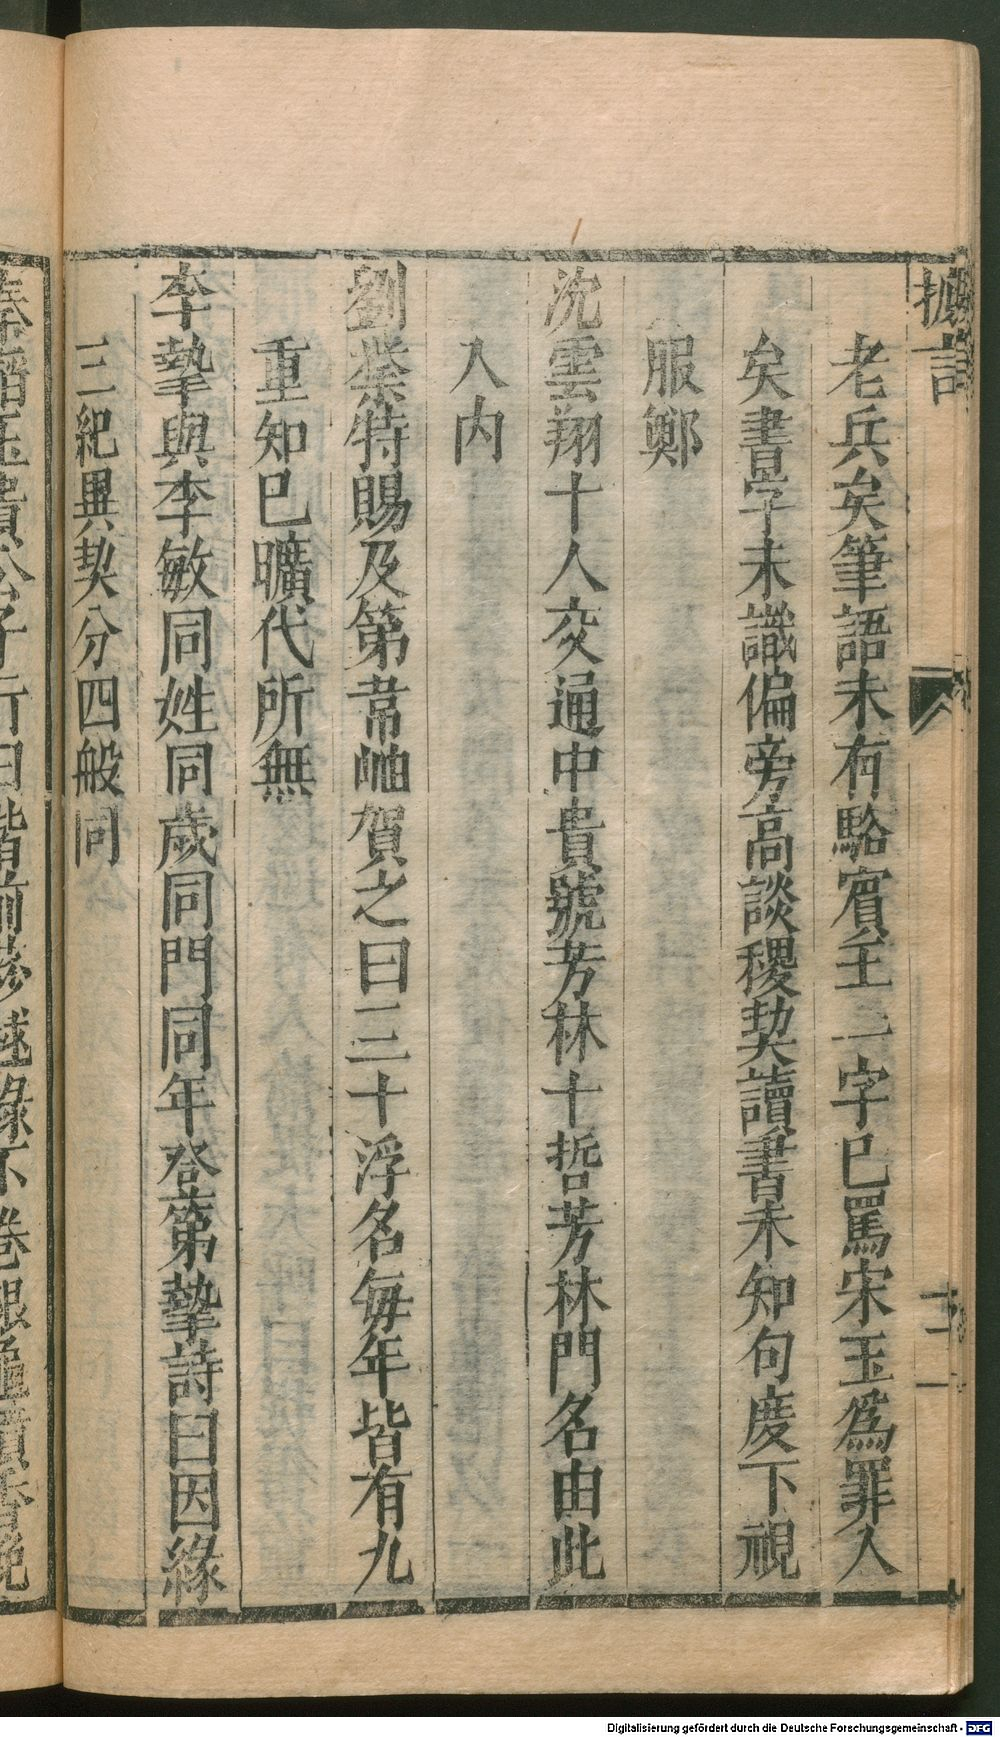 摭言
老兵矣筆語未有駱賓王一字已罵宋玉爲罪人
矣書字未識偏旁高談稷契讀書未知句度下視
服鄭
沈雲翔十人交通中貴號芳林十哲芳林門名由此
入内
劉業特賜及第韋岫賀之曰三十浮名每年皆有九
重知已曠代所無
李摯與李敏同姓同歲同門同年登第摯詩曰因緣
三紀異契分四般同
Digitalisierung gefördert durch die Deutsche Forschungsgemeinschaft - DFG